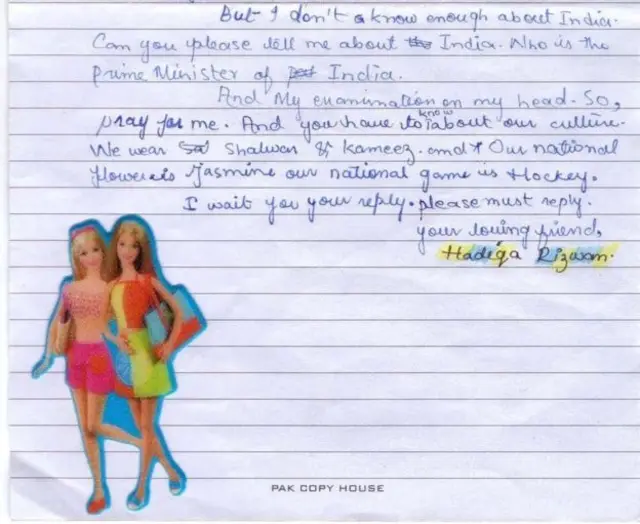 But I don't know enough about India.
Can you please tell me about India. Who is the
Prime Minister of India.
And My examination on my head. So,
pray for me. And you have to know about our culture.
We wear Shalwar & Kameez. and Our national
flower is Jasmine our national game is Hockey.
I wait you your reply. please must reply.
your loving friend,
Hadeqa Rizwan.
PAK COPY HOUSE